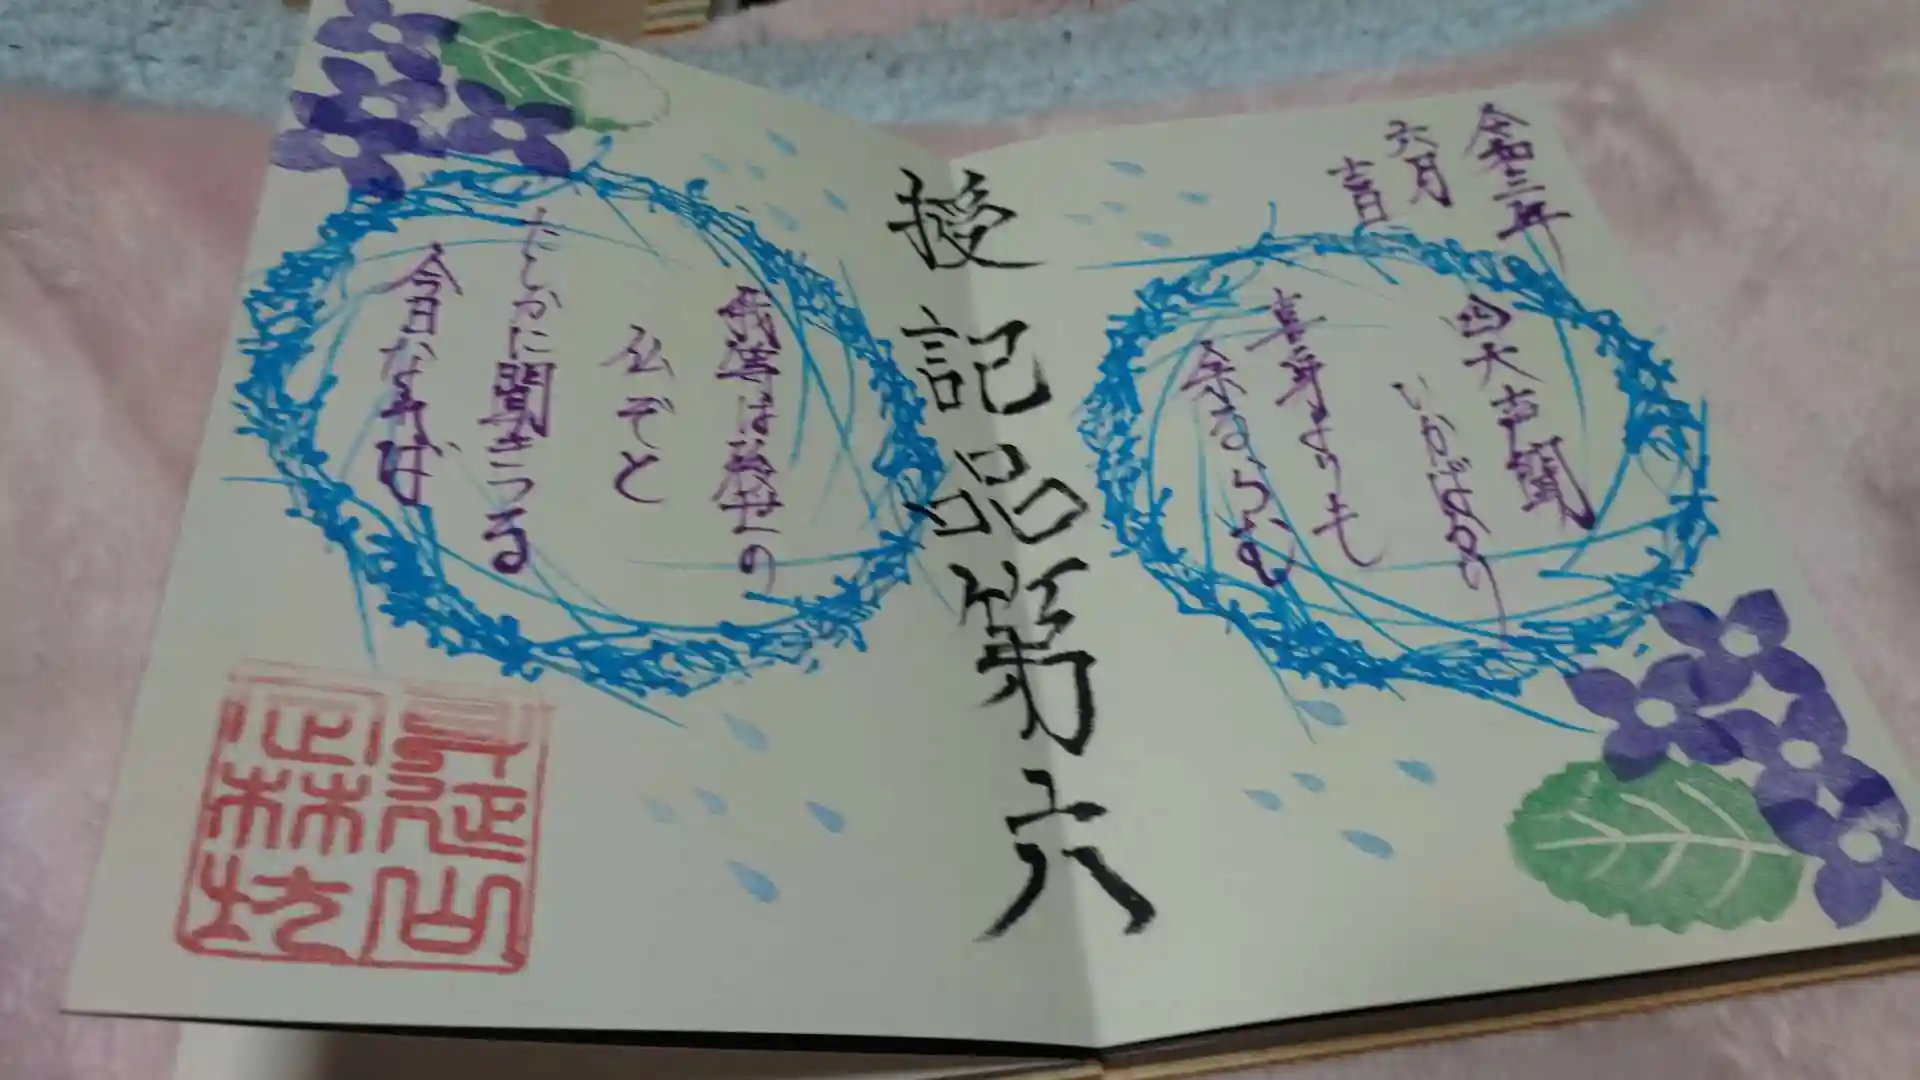 令和三年
六月
吉日
四大声聞
いかばかり
喜身よりも
余るらむ
授記品第六
我等は後世の
仏ぞと
たしかに聞きつる
今日なれば
身延山
定林坊